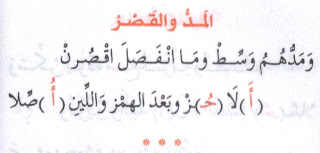 المدُّ والقَصْرُ
وَمَدَّهُمُ وَسِّطْ وَمَا انْفَصَلَ اقْصُرَنْ
(أَ)لَا (حُـ)ـزْ وَبَعْدَ الهمْزِ وَاللِّينِ (أُ)صِّلا
***